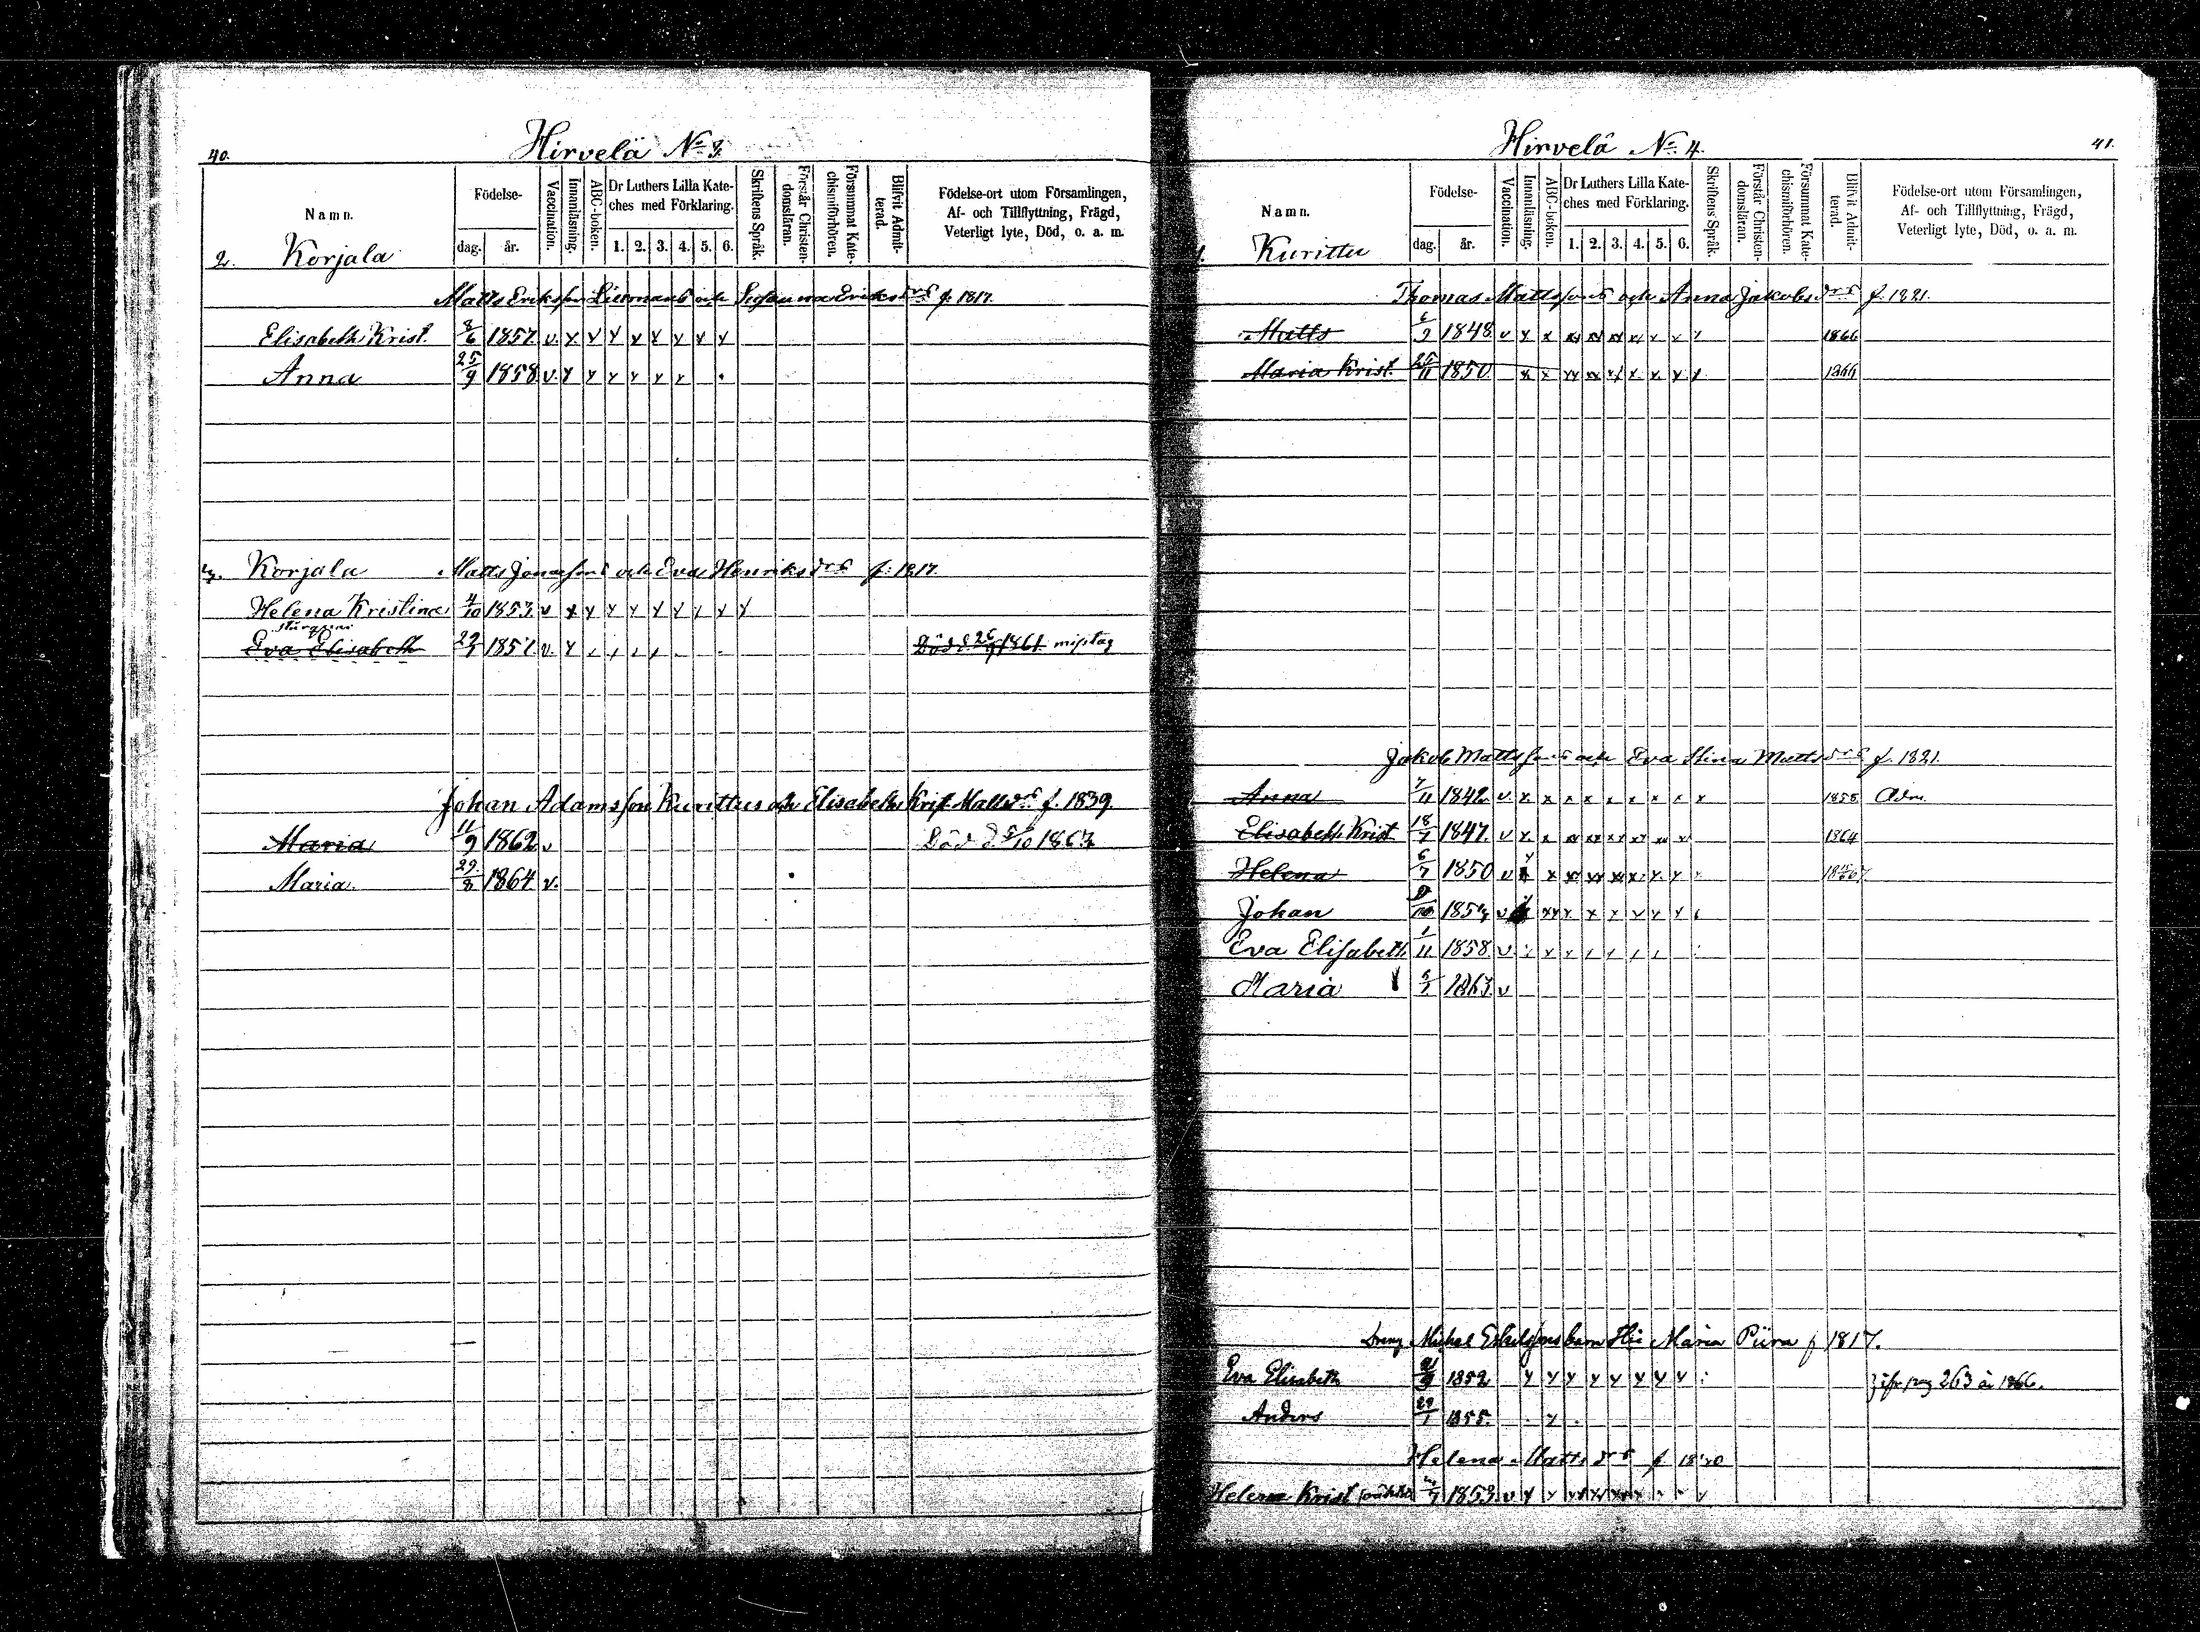 40.
Hirvelä No 3.
Namn.
Födelse-
dag. år.
Vaccination.
Innanläsning.
ABC-boken.
Dr Luthers Lilla Kate-
ches med Förklaring.
1. 2. 3. 4. 5. 6.
Skriftens Språk.
Förstår Christen-
domsläran.
Försummat Kate-
chismiförhören.
Blifvit Admit-
terad.
Födelse-ort utom Församlingen,
Af- och Tillflyttning, Frägd,
Veterligt lyte, Död, o. a. m.
2. Korjala
Matts Eriksson och Eriksdrs f. 1817.
Elisabeth Krist. 8/6 1857. v. x v y x y x x x
Anna 25/9 1858. v. y y y y x x
Korjala Matts och Eva Henriksdrs f. 1817.
Helena Kristina 4/10 1853. v x y y y y y y y y
Eva Elisabeth 1857. v. y Död 1861. misstag
Johan Adamsson Kurittus och Elisabeth Krist. Mattsdrs f. 1839.
Maria 11/9 1862 v Död d. 1867
Maria. 29/8 1864 v.
41.
Hirvelä No 4.
Namn.
Födelse-
dag. år.
Vaccination.
Innanläsning.
ABC-boken.
Dr Luthers Lilla Kate-
ches med Förklaring.
1. 2. 3. 4. 5. 6.
Skriftens Språk.
Förstår Christen-
domsläran.
Försummat Kate-
chismiförhören.
Blifvit Admit-
terad.
Födelse-ort utom Församlingen,
Af- och Tillflyttning, Frägd,
Veterligt lyte, Död, o. a. m.
Kurittu
Thomas Mattssons och Anna Jakobsdrs f. 1821.
Matts 6/9 1848 v x x xx xx xx xx x x x 1866
Maria Krist. 25/11 1850 x x xx xx xx x x x x
Jakob Mattssons och Eva Stina Mattsdrs f. 1821.
Anna 7/11 1842 v x x x x x x x x x 1858 Adm.
Elisabeth Krist 18/7 1847. v x x xx xx xx xx xx x 1864
Helena 6/7 1850 v x xx xx xx x x x
Johan v xx x x x v x x
Eva Elisabeth 1/11 1858. v
Maria 1863. v
Dreng Michel barn Maria Piira f 1817.
Eva Elisabeth 1852 y y y y y y y y
pag 263 år 1866.
Anders 29/1 1855. y
Helena Mattsdrs f
Helena Krist 1853. v y